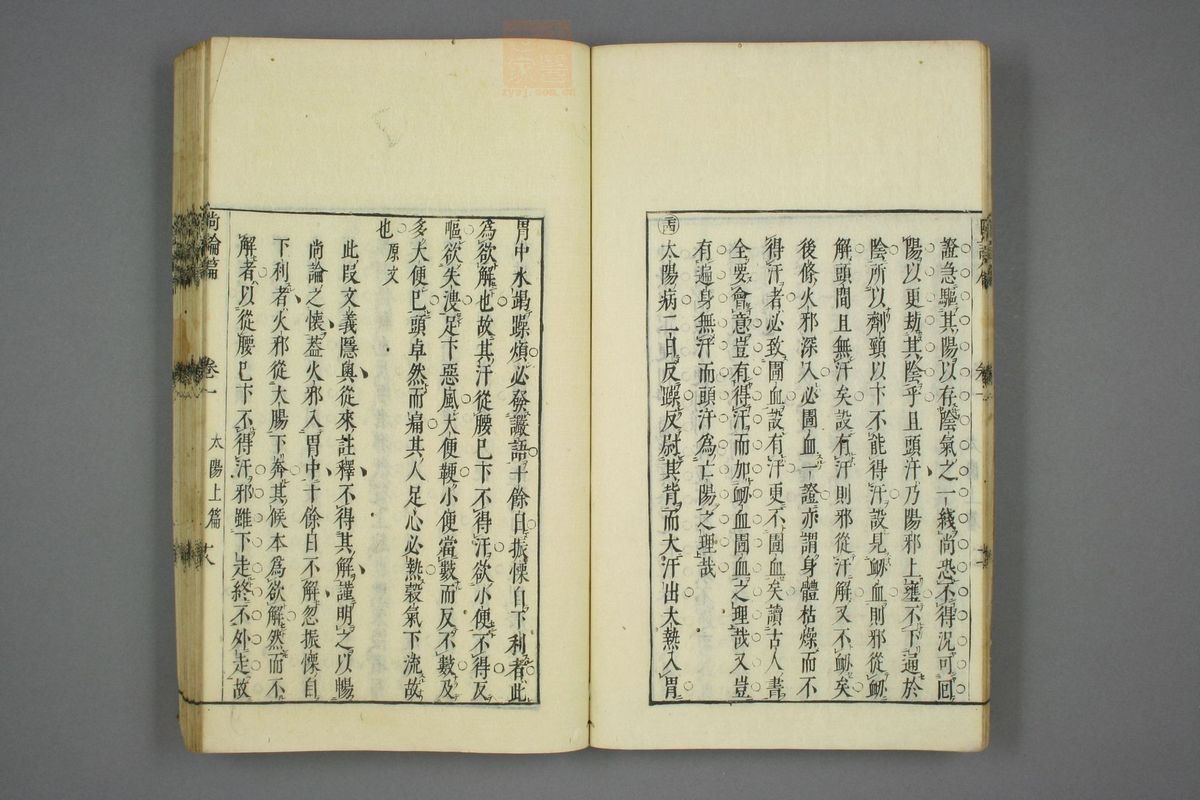 證急驅其陽以存陰氣之一綫尚恐不得況可回
陽以更劫其陰乎且頭汗乃陽邪上壅不下逼於
陰所以劑頸以下不能得汗設見衂血則邪從衂
解頭間且無汗矣設有汗則邪從汗解又不衂矣
後條火邪深入必圊血一證亦謂身體枯燥而不
得汗者必致圊血設有汗更不圊血矣讀古人書
全要會意豈有得汗而加衂血圊血之理哉又豈
有遍身無汗而頭汗為亡陽之理哉
太陽病二日反躁反尉其背而大汗出大熱入胃
胃中水竭躁煩必發譫語十餘日振慄自下利者此
為欲解也故其汗從腰已下不得汗欲小便不得反
嘔欲失溲足下惡風大便鞕小便當數而反不數及
多大便已頭卓然而痛其人足心必熱穀氣下流故
也原文
此段文義隱奧從來註釋不得其解謹明之以暢
尚論之懷蓋火邪入胃中十餘日不解忽振慄自
下利者火邪從大腸下奔其候本為欲解然而不
解者以從腰已下不得汗邪雖下走終不外走故
尚論篇 卷一 太陽上篇
zysj.com.cn